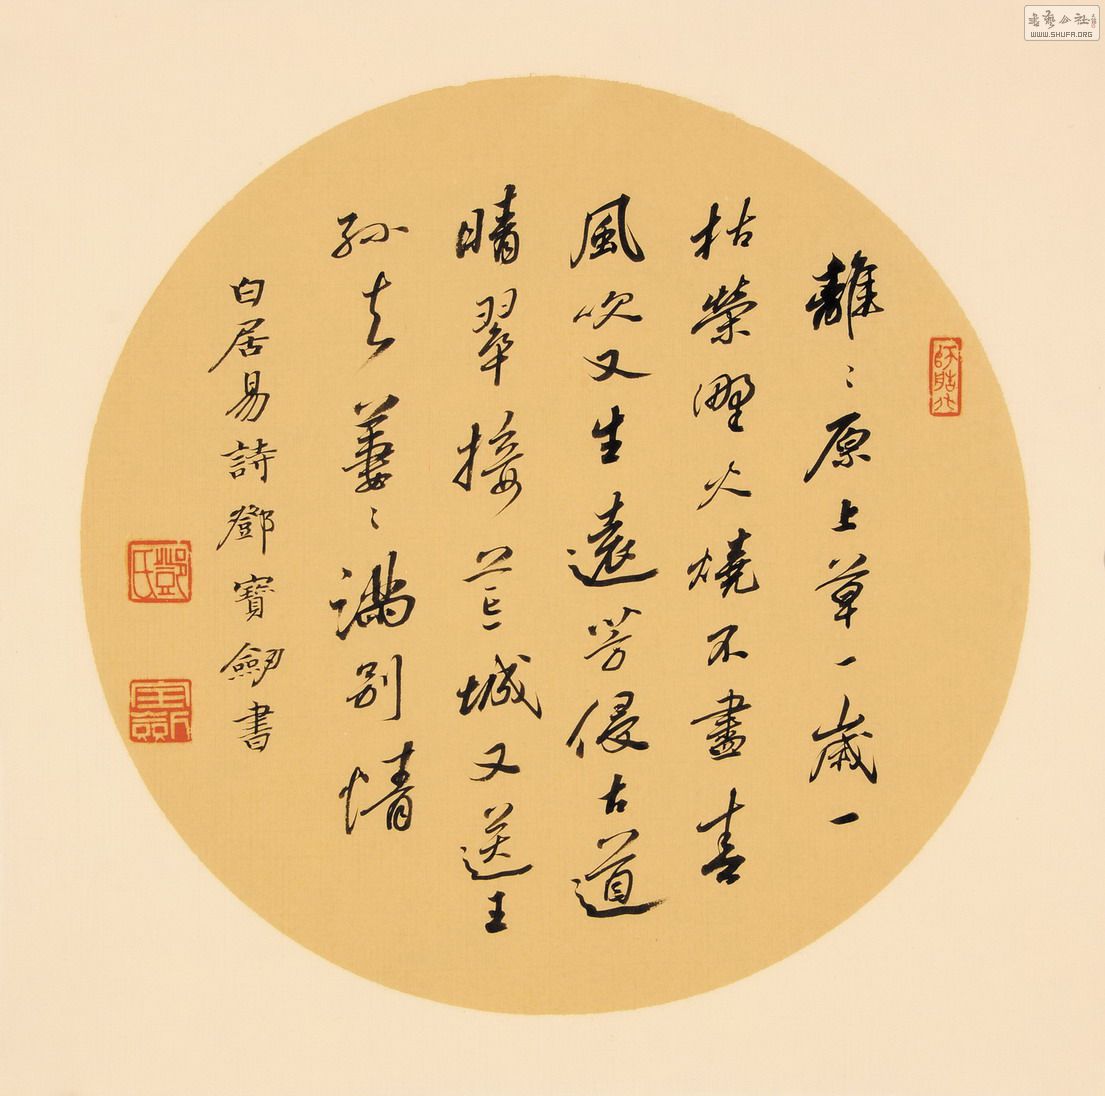 離〻原上草一歲一
枯榮野火燒不盡春
風吹又生遠芳侵古道
晴翠接荒城又送王
孫去萋〻滿別情
白居易詩鄧寶劒書
鄧氏
書藝公社
WWW.SHUFA.ORG